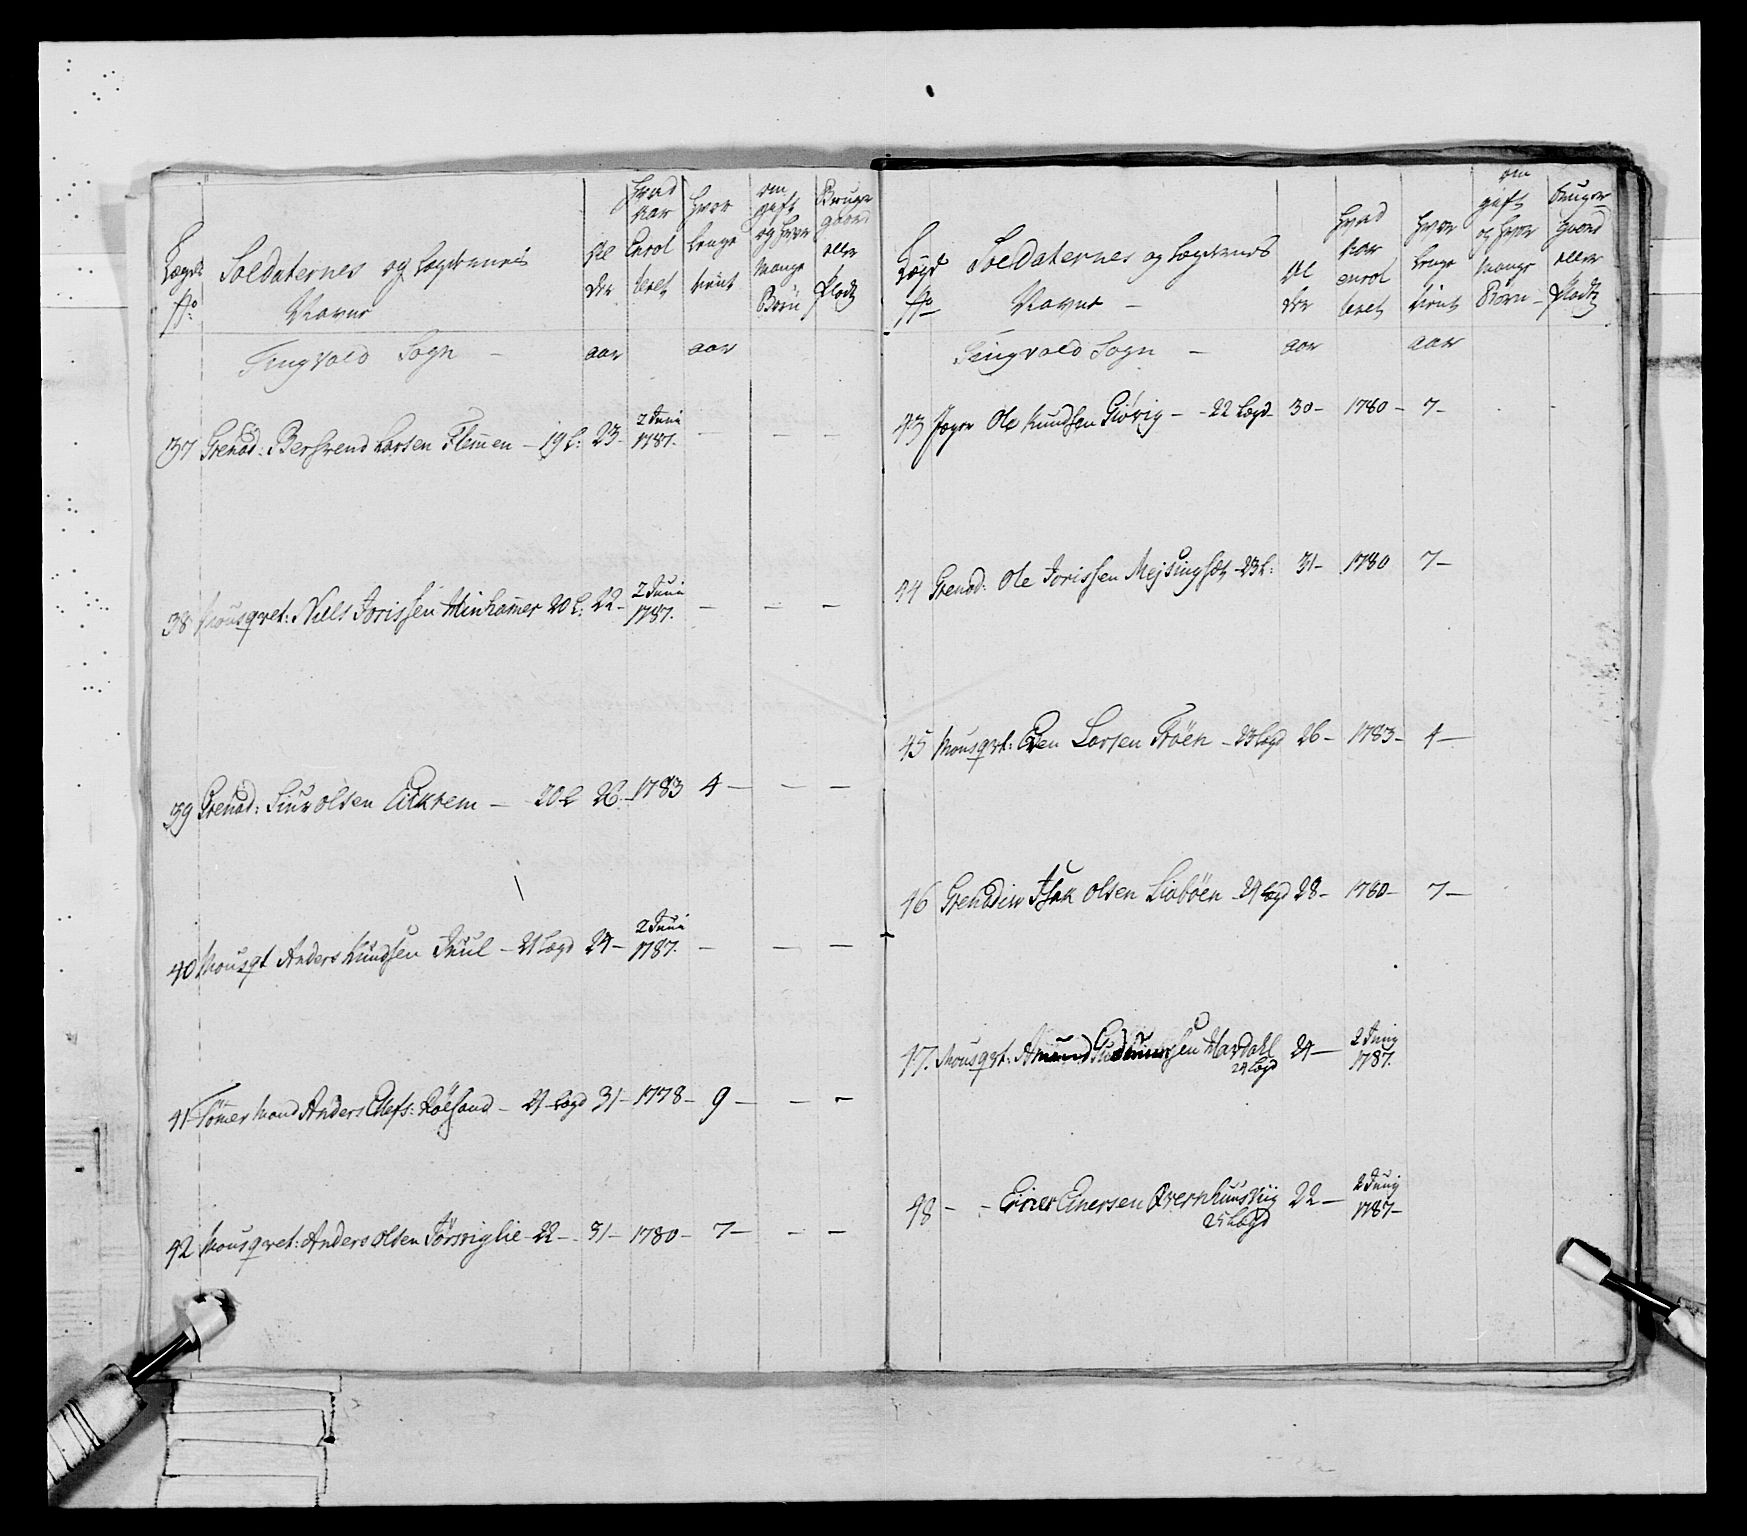 Lægd No
Soldaternes og Lægdernes Navne
Al der
Hvad Aar Enrol leret
Hvor lenge tient
om gift og hvor mange Børn
Bruger gaard eller Pladz
Tingvold Sogn -
aar
aar
37 Grenad: Larsen Flemmen - 19 L: 23- 2 Juni 1787. - - -
38 Mousqvet: Niels Jorissen Minhamer 20 L: 22- 2 Juni 1787. - - -
39 Grenad: Siur Olsen - 20 L 26- 1783 4 - - -
40 Mousqt Anders Knudsen Juul - 21 Lægd 24- 2 Juni 1787. - - -
41 Tömermand Anders Röesand - 21 Lægd 31- 1778- 9 - - -
42 Mousqvet: Anders Olsen - 22 - 31- 1780- 7- - -
Lægd No
Soldaternes og Lægdernes Navne -
Al der
Hvad Aar enrol leret
Hvor lenge tient
om gift og hvor mange Børn -
Bruger gaard eller Pladz
Tingvold Sogn -
aar
aar
43 Jæger Ole Knudsen Giörig - - 22 Lægd- 30- 1780- 7-
44 Grenad: Ole Jorissen Mejsingset - 23 L: 31- 1780 7-
45 Mousqvt: Larsen - 23 Lægd 26- 1783- 4-
46 Grenadier Isak Olsen Liabøen - 24 Lægd 28- 1780- 7-
47. Mousqvt: Amund Gudmunsen Hardahl 24- 2 Junij 1787.
24 Lægd
48 - - Einer Einersen Qvernhuusviig 22- 2 Junij 1787-
25 Lægd